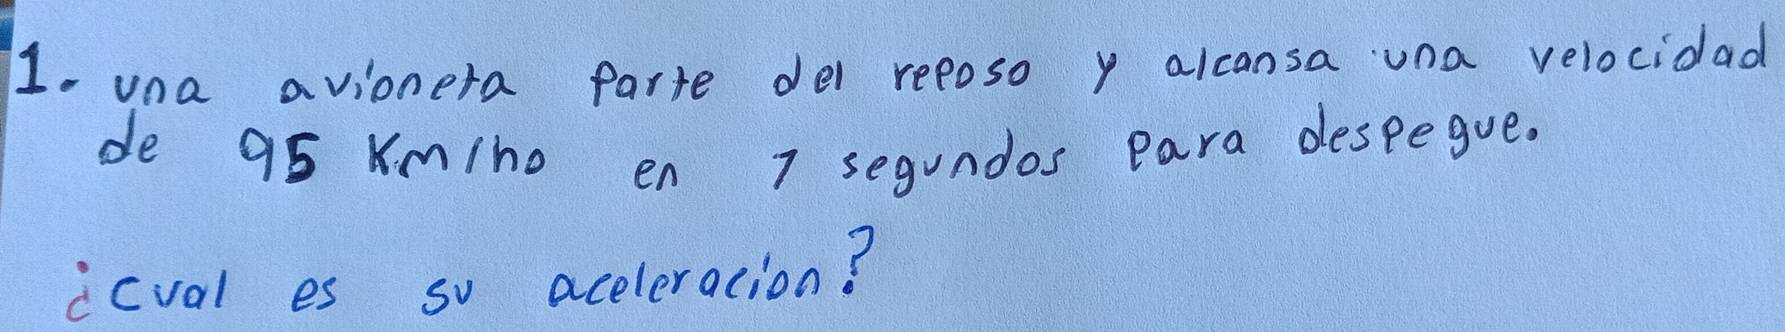 1. una avioneta parte del reposo y alcansa una velocidad
de 95 Km/ho en 7 segundos para despegue.
¿cual es su aceleracion?